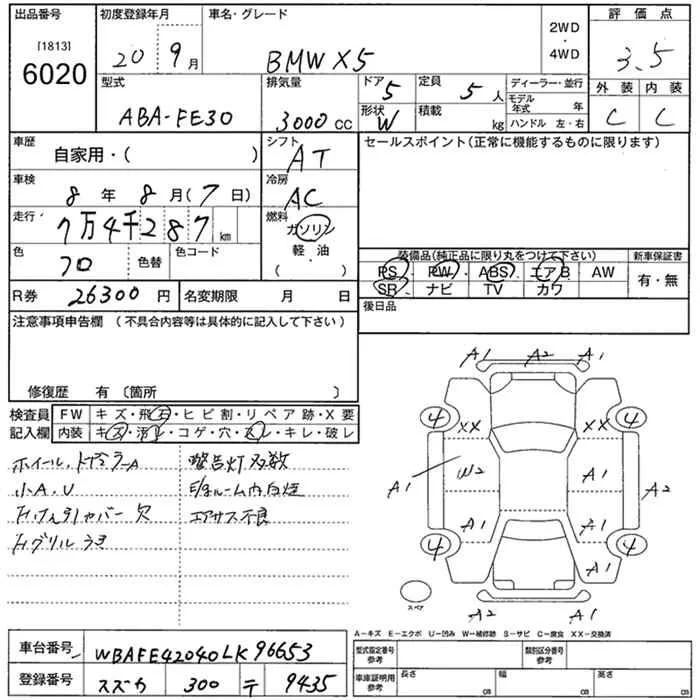 出品番号 初度登録年月 車名・グレード 2WD・4WD 評価点
[1813]
6020 20 9月 BMW X5 3.5
型式 排気量 ドア 5 定員 5人 ディーラー・並行 外装 内装
ABA-FE30 3000cc 形状 W 積載 kg モデル年式 年 C C
ハンドル 左・右
車歴 自家用・( ) シフト AT セールスポイント(正常に機能するものに限ります)
車検 8年 8月(7日) 冷房 AC
走行 7万4千287km 燃料 ガソリン
軽・油
・
( )
色 色替 色コード
装備品(純正品に限り丸をつけて下さい) 新車保証書
PS PW ABS エアB AW 有・無
SR ナビ TV カワ
R券 26300円 名変期限 月 日 後日品
注意事項申告欄 (不具合内容等は具体的に記入して下さい)
修復歴 有〔箇所 〕
検査員 FW キズ・飛石・ヒビ割・リペア跡・X要
記入欄 内装 キズ・汚れ・コゲ・穴・スレ・キレ・破レ
警告灯多数
小A.U
欠 エアサス不良
A1 A2 A1
4 4
XX XX
A1 W2 A1 A2
A1 A1
4 4
A1
スペア
A2 A1
A-キズ E-エクボ U-凹み W-補修跡 S-サビ C-腐食 XX-交換済
車台番号 WBAFE42040LK96653
登録番号 スズカ 300 テ 9435
型式指定番号 参考 類別区分番号 参考
車庫証明用 参考 長さ cm 幅 cm 高さ cm